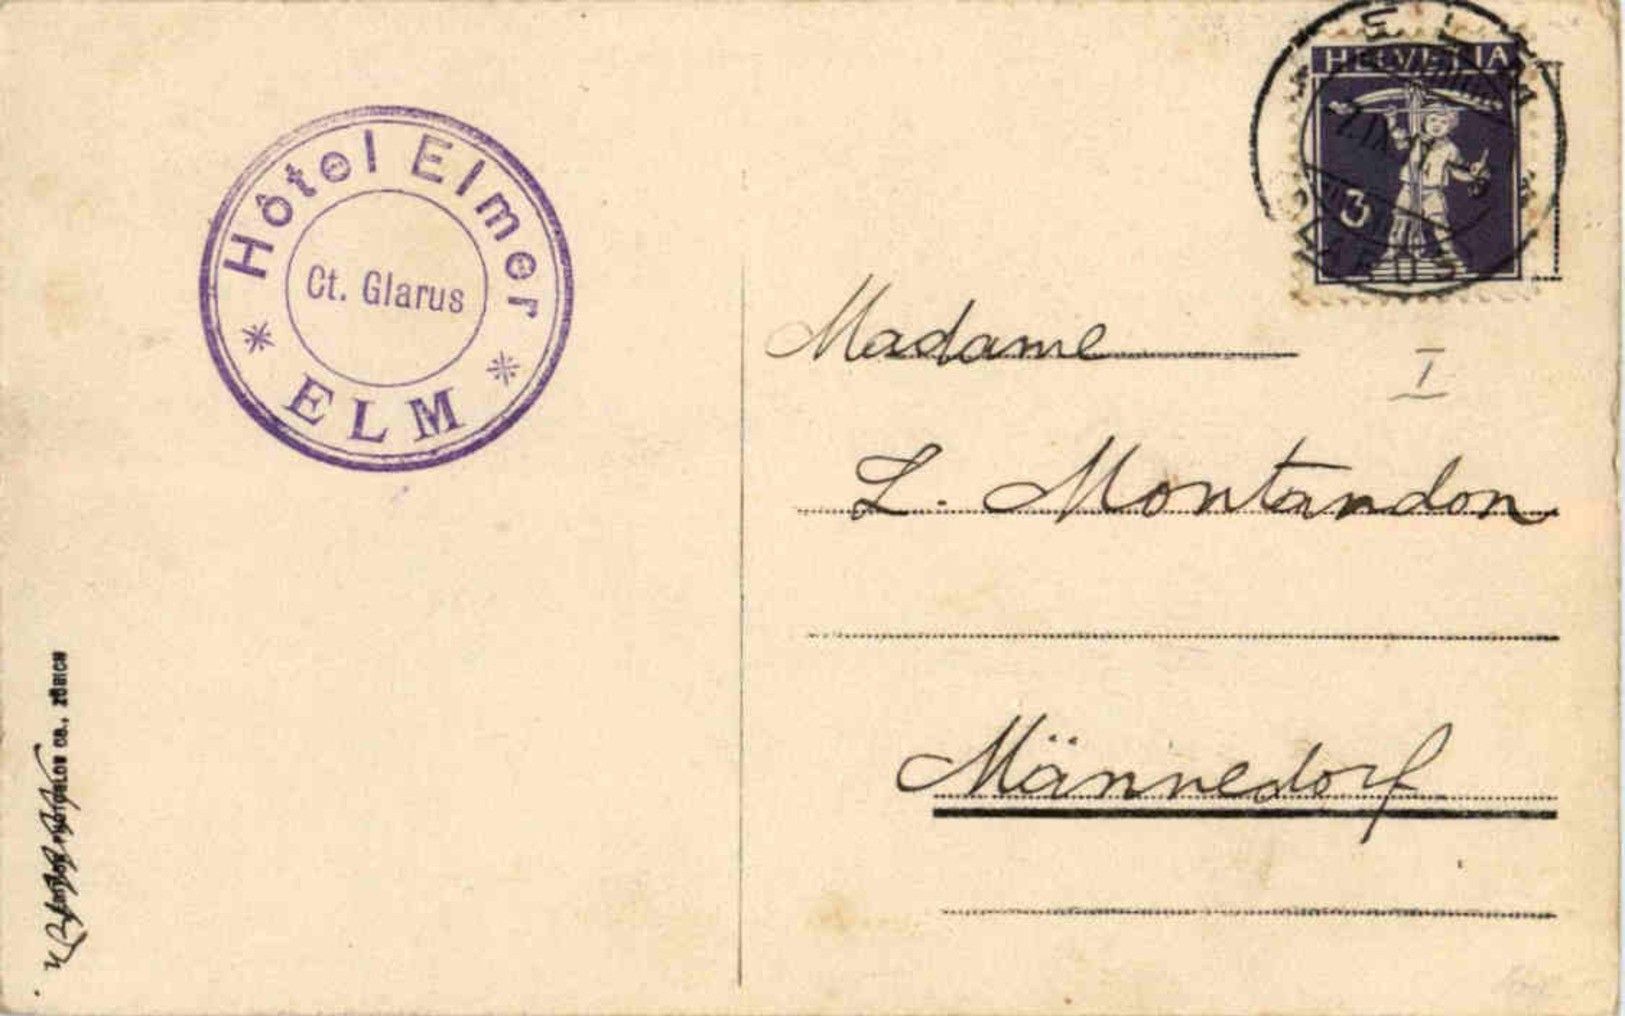 Hôtel Elmer
Ct. Glarus
* ELM *
HELVETIA
3
ELM
GLARUS
Madame
I
L. Montandon
Männedorf
PHOTOGLOB CO., ZÜRICH